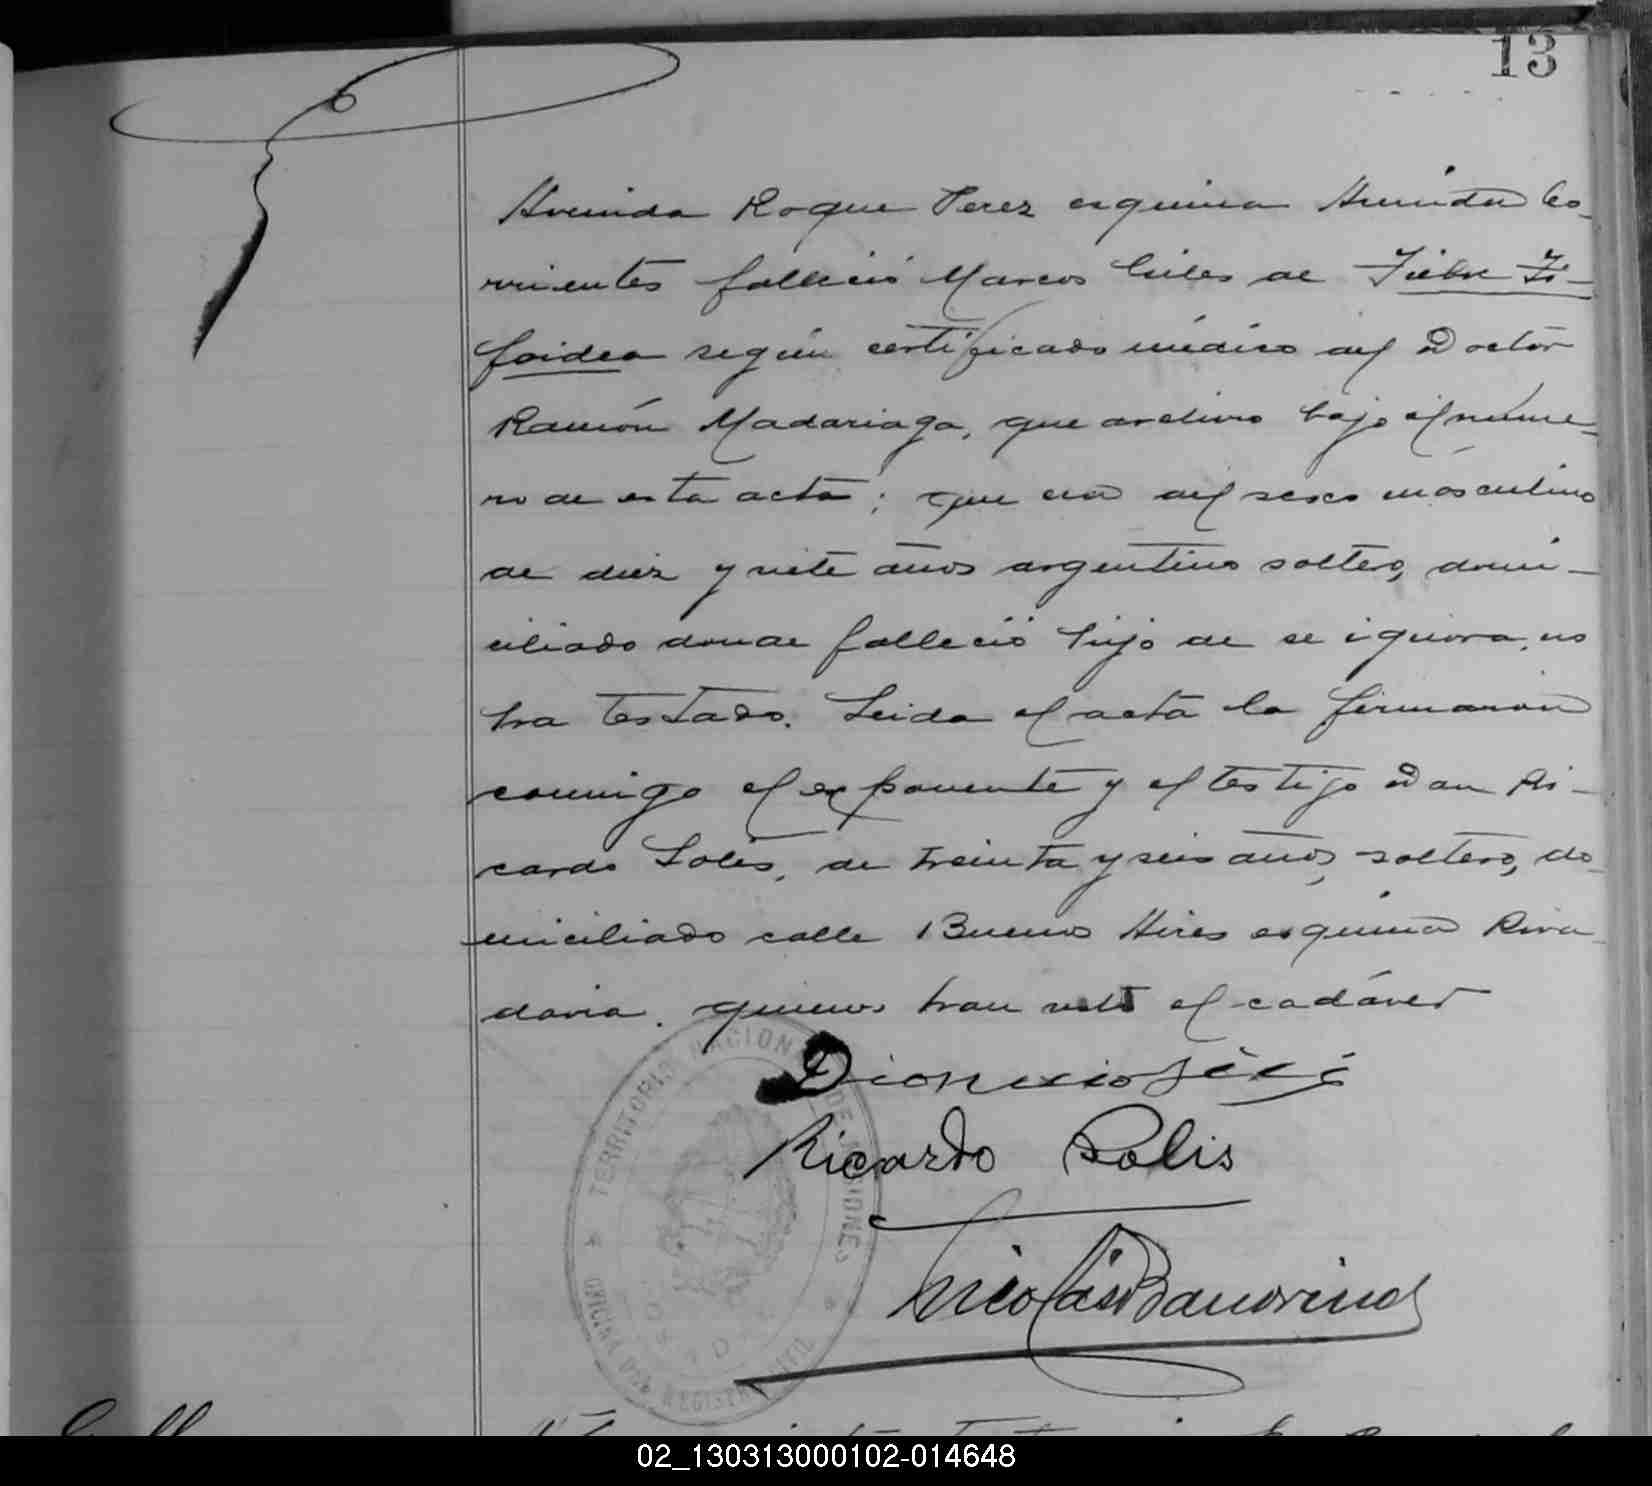 13
Avenida Roque Perez esquina Avenida Co-
rrientes falleció Marcos de Fiebre Ti-
foidea según certificado médico del Doctor
Ramón Madariaga, que archivo bajo el núme-
ro de esta acta; que era del sexo masculino
de diez y siete años argentino soltero, domi-
ciliado donde falleció hijo de se ignora, no
ha testado. Leida el acta la firmaron
conmigo el exponente y el testigo Don Ri-
cardo Solis, de treinta y seis años, soltero, do-
miciliado calle Buenos Aires esquina Riva-
davia. quienes han visto el cadáver
Dionicio
Ricardo Solis
Nicolás
TERRITORIO NACIONAL DE MISIONES
OFICINA DEL REGISTRO CIVIL
02_130313000102-014648